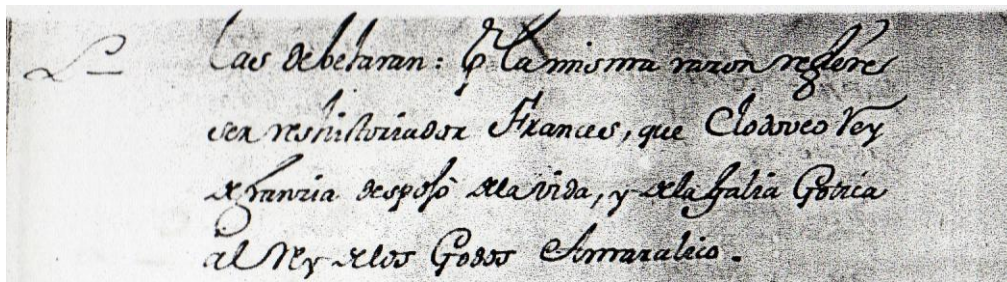 las debelaran: P. la misma razon refiere
ser res historiador Frances, que Clodoveo Rey
de franzia despojò de la vida, y de la galia Gotica
al Rey de los Godos Amaralico.